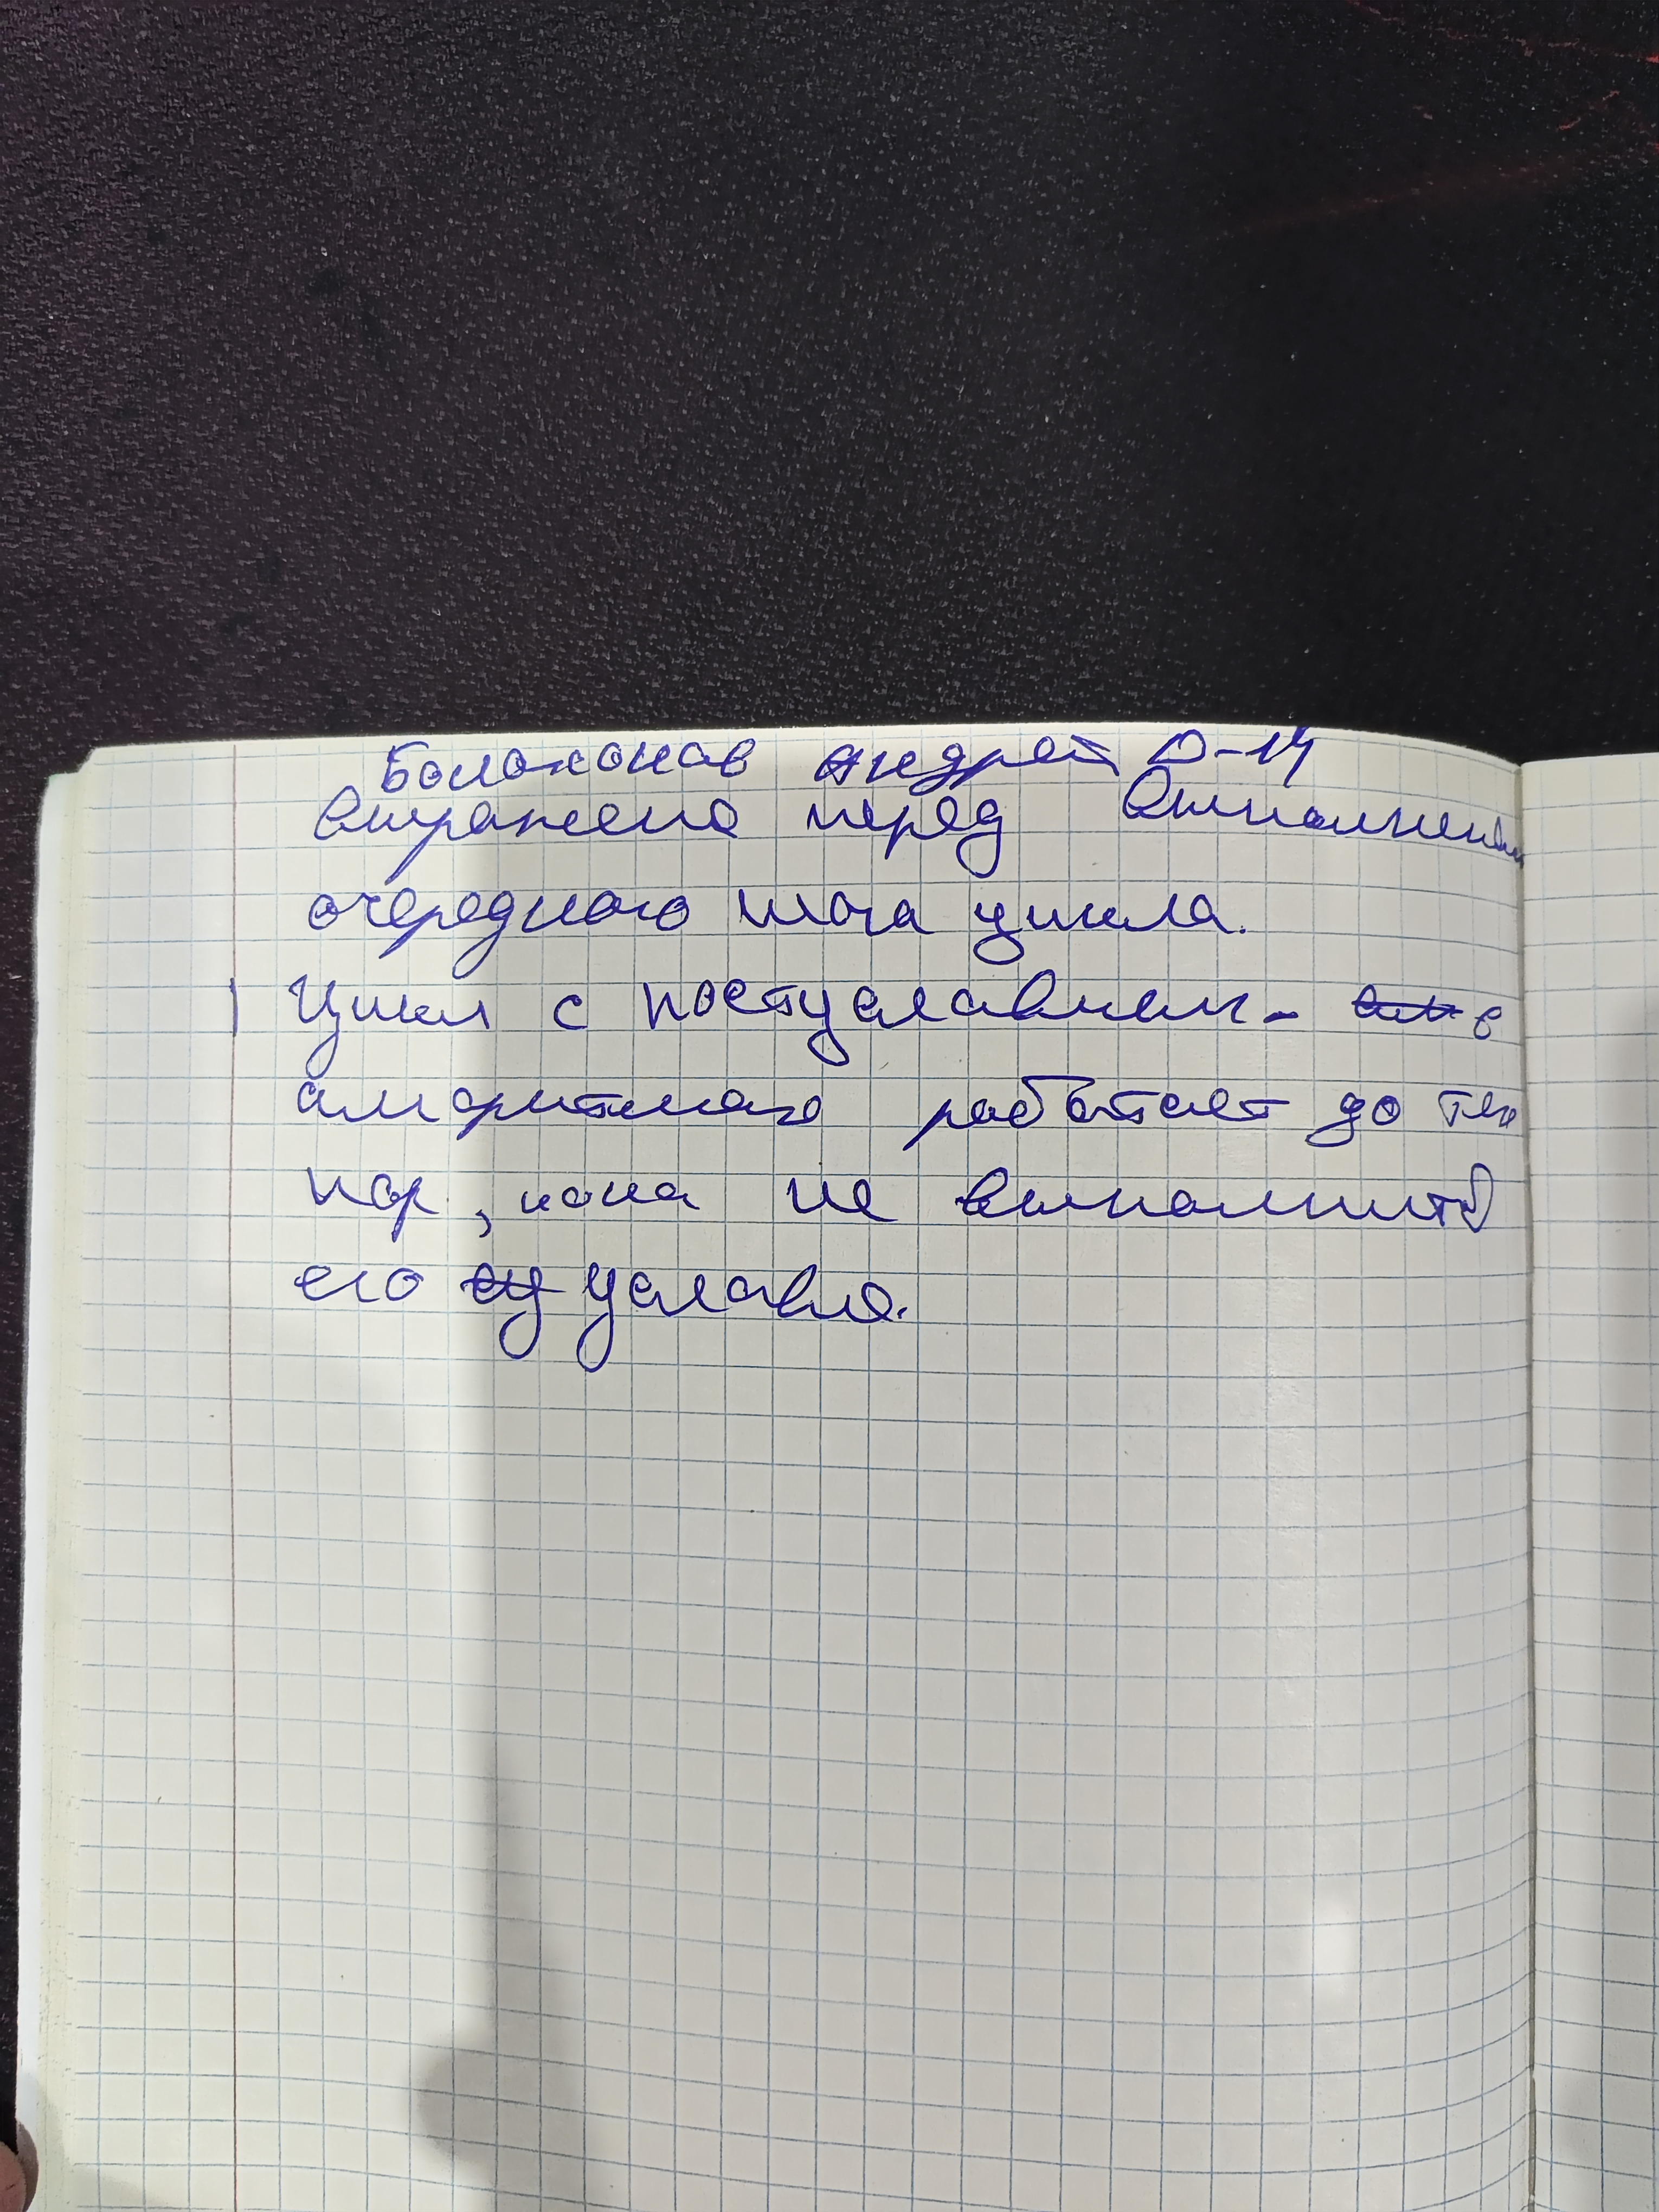 Болоконов Андрей D-14
выражено перед выполнением
очередного шага цикла.
Цикл с постусловием - в
алгоритмах работает до тех
пор, пока не выполнит
его условие.